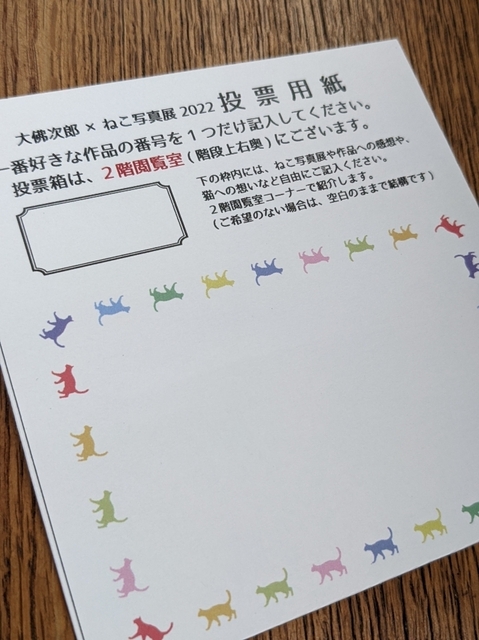 大佛次郎 × ねこ写真展 2022 投票用紙
一番好きな作品の番号を1つだけ記入してください。
投票箱は、2階閲覧室(階段上右奥)にございます。
下の枠内には、ねこ写真展や作品への感想や、
猫への想いなど自由にご記入ください。
2階閲覧室コーナーで紹介します。
(ご希望のない場合は、空白のままで結構です)